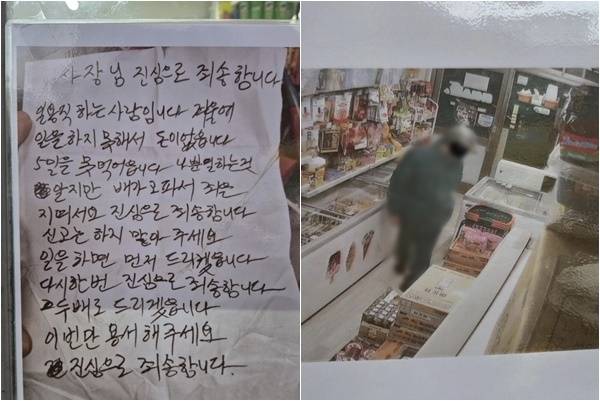 사장님 진심으로 죄송합니다
일용직 하는 사람입니다
일을 하지 못해서 돈이 없읍니다
5일을 못먹어읍니다 나쁜일하는것
알지만 배가고파서 죄를
진심으로 죄송합니다
신고는 하지 말아 주세요
일을 하면 먼저 드리겟읍니다
다시한번 진심으로 죄송합니다
두배로 드리겟읍니다
이번만 용서해주세요
진심으로 죄송합니다.